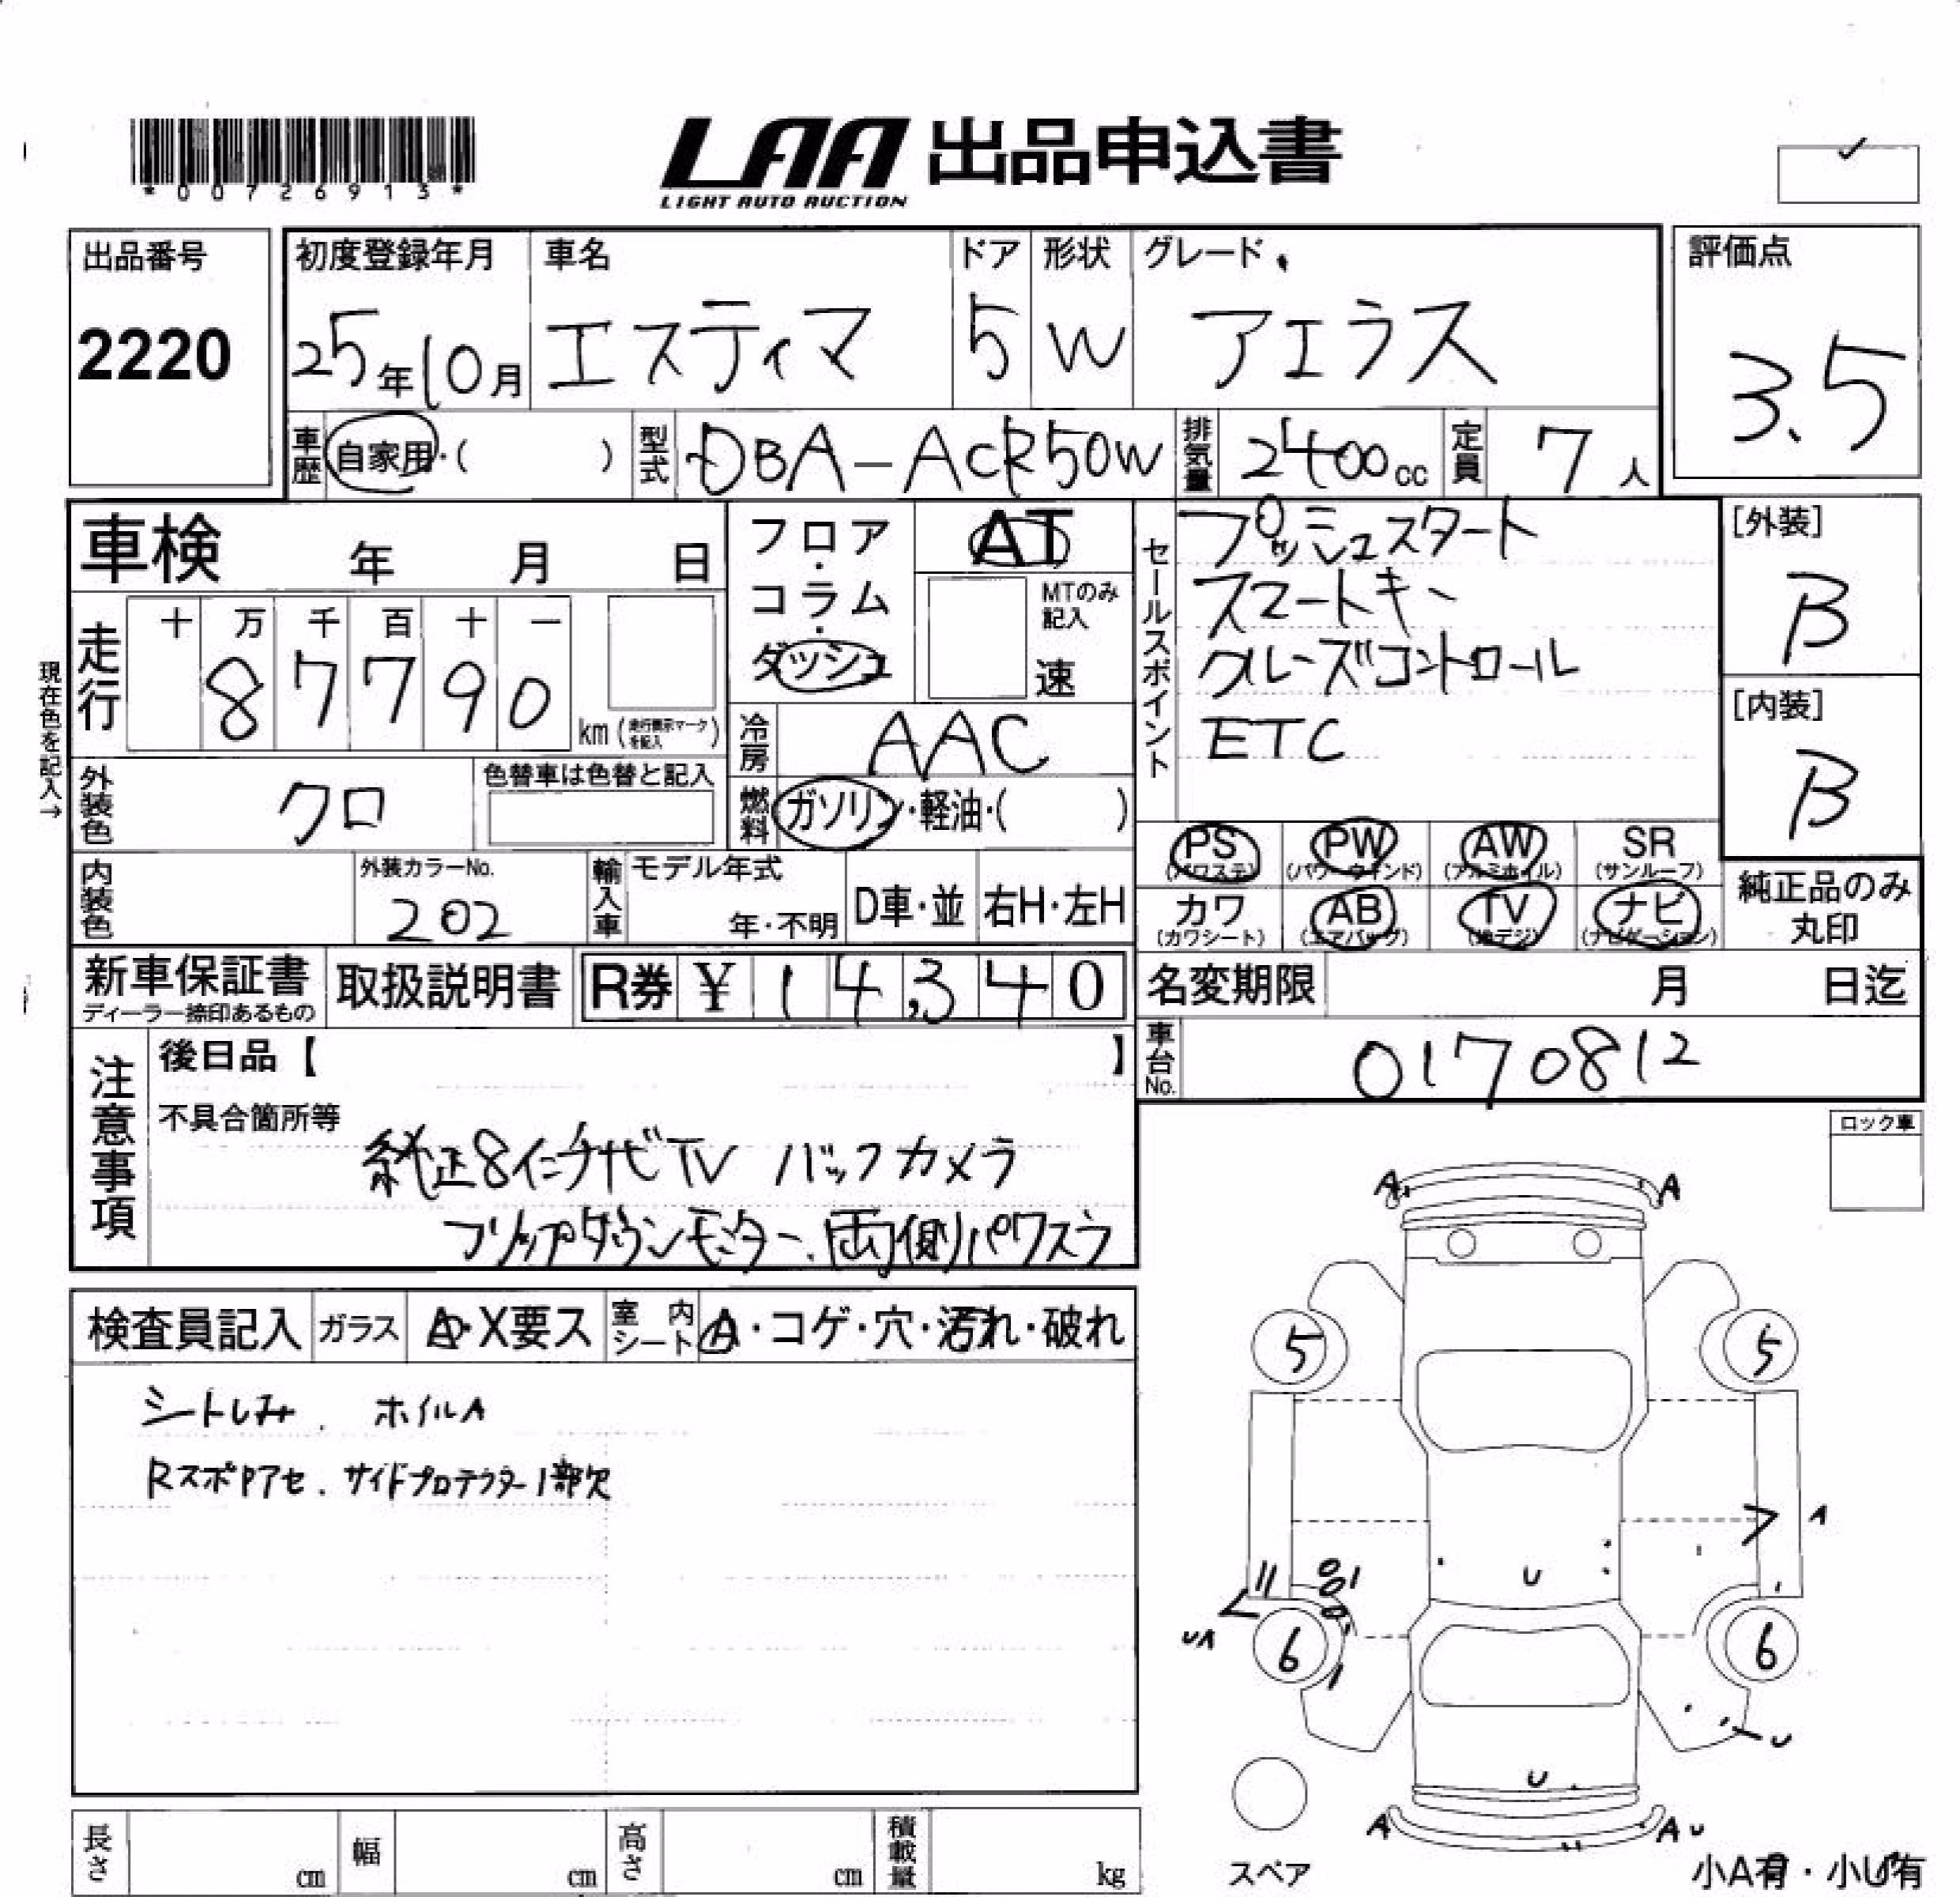 *00726913*
LAA 出品申込書
LIGHT AUTO AUCTION
出品番号
2220
初度登録年月
25年10月
車名
エスティマ
ドア
5
形状
W
グレード
アエラス
評価点
3.5
車歴
自家用・( )
型式
DBA-ACR50W
排気量
2400cc
定員
7人
車検 年 月 日
現在色を記入→
走行
十 万 千 百 十 一
8 7 7 9 0
km (走行表示マークを記入)
フロア・コラム・ダッシュ
AT
MTのみ記入
速
冷房
AAC
外装色
クロ
色替車は色替と記入
燃料
ガソリン・軽油・( )
セールスポイント
プッシュスタート
スマートキー
クルーズコントロール
ETC
[外装]
B
[内装]
B
PS (パワステ)
PW (パワーウインド)
AW (アルミホイル)
SR (サンルーフ)
カワ (カワシート)
AB (エアバッグ)
TV (地デジ)
ナビ (ナビゲーション)
純正品のみ
丸印
内装色
外装カラーNo.
202
輸入車
モデル年式
年・不明
D車・並
右H・左H
新車保証書
ディーラー捺印あるもの
取扱説明書
R券 ¥ 14,340
名変期限 月 日迄
車台No.
0170812
注意事項
後日品【 】
不具合箇所等
純正8インチナビTV バックカメラ
フリップダウンモニター、両側パワスラ
ロック車
検査員記入
ガラス
A・X要ス
室内シート
A・コゲ・穴・汚れ・破れ
シートしみ. ホイルA
RスポPアセ. サイドプロテクター1部欠
A A
5 5
A
U
UA
6 6
U
U
A A U
スペア
小A有・小U有
長さ cm
幅 cm
高さ cm
積載量 kg